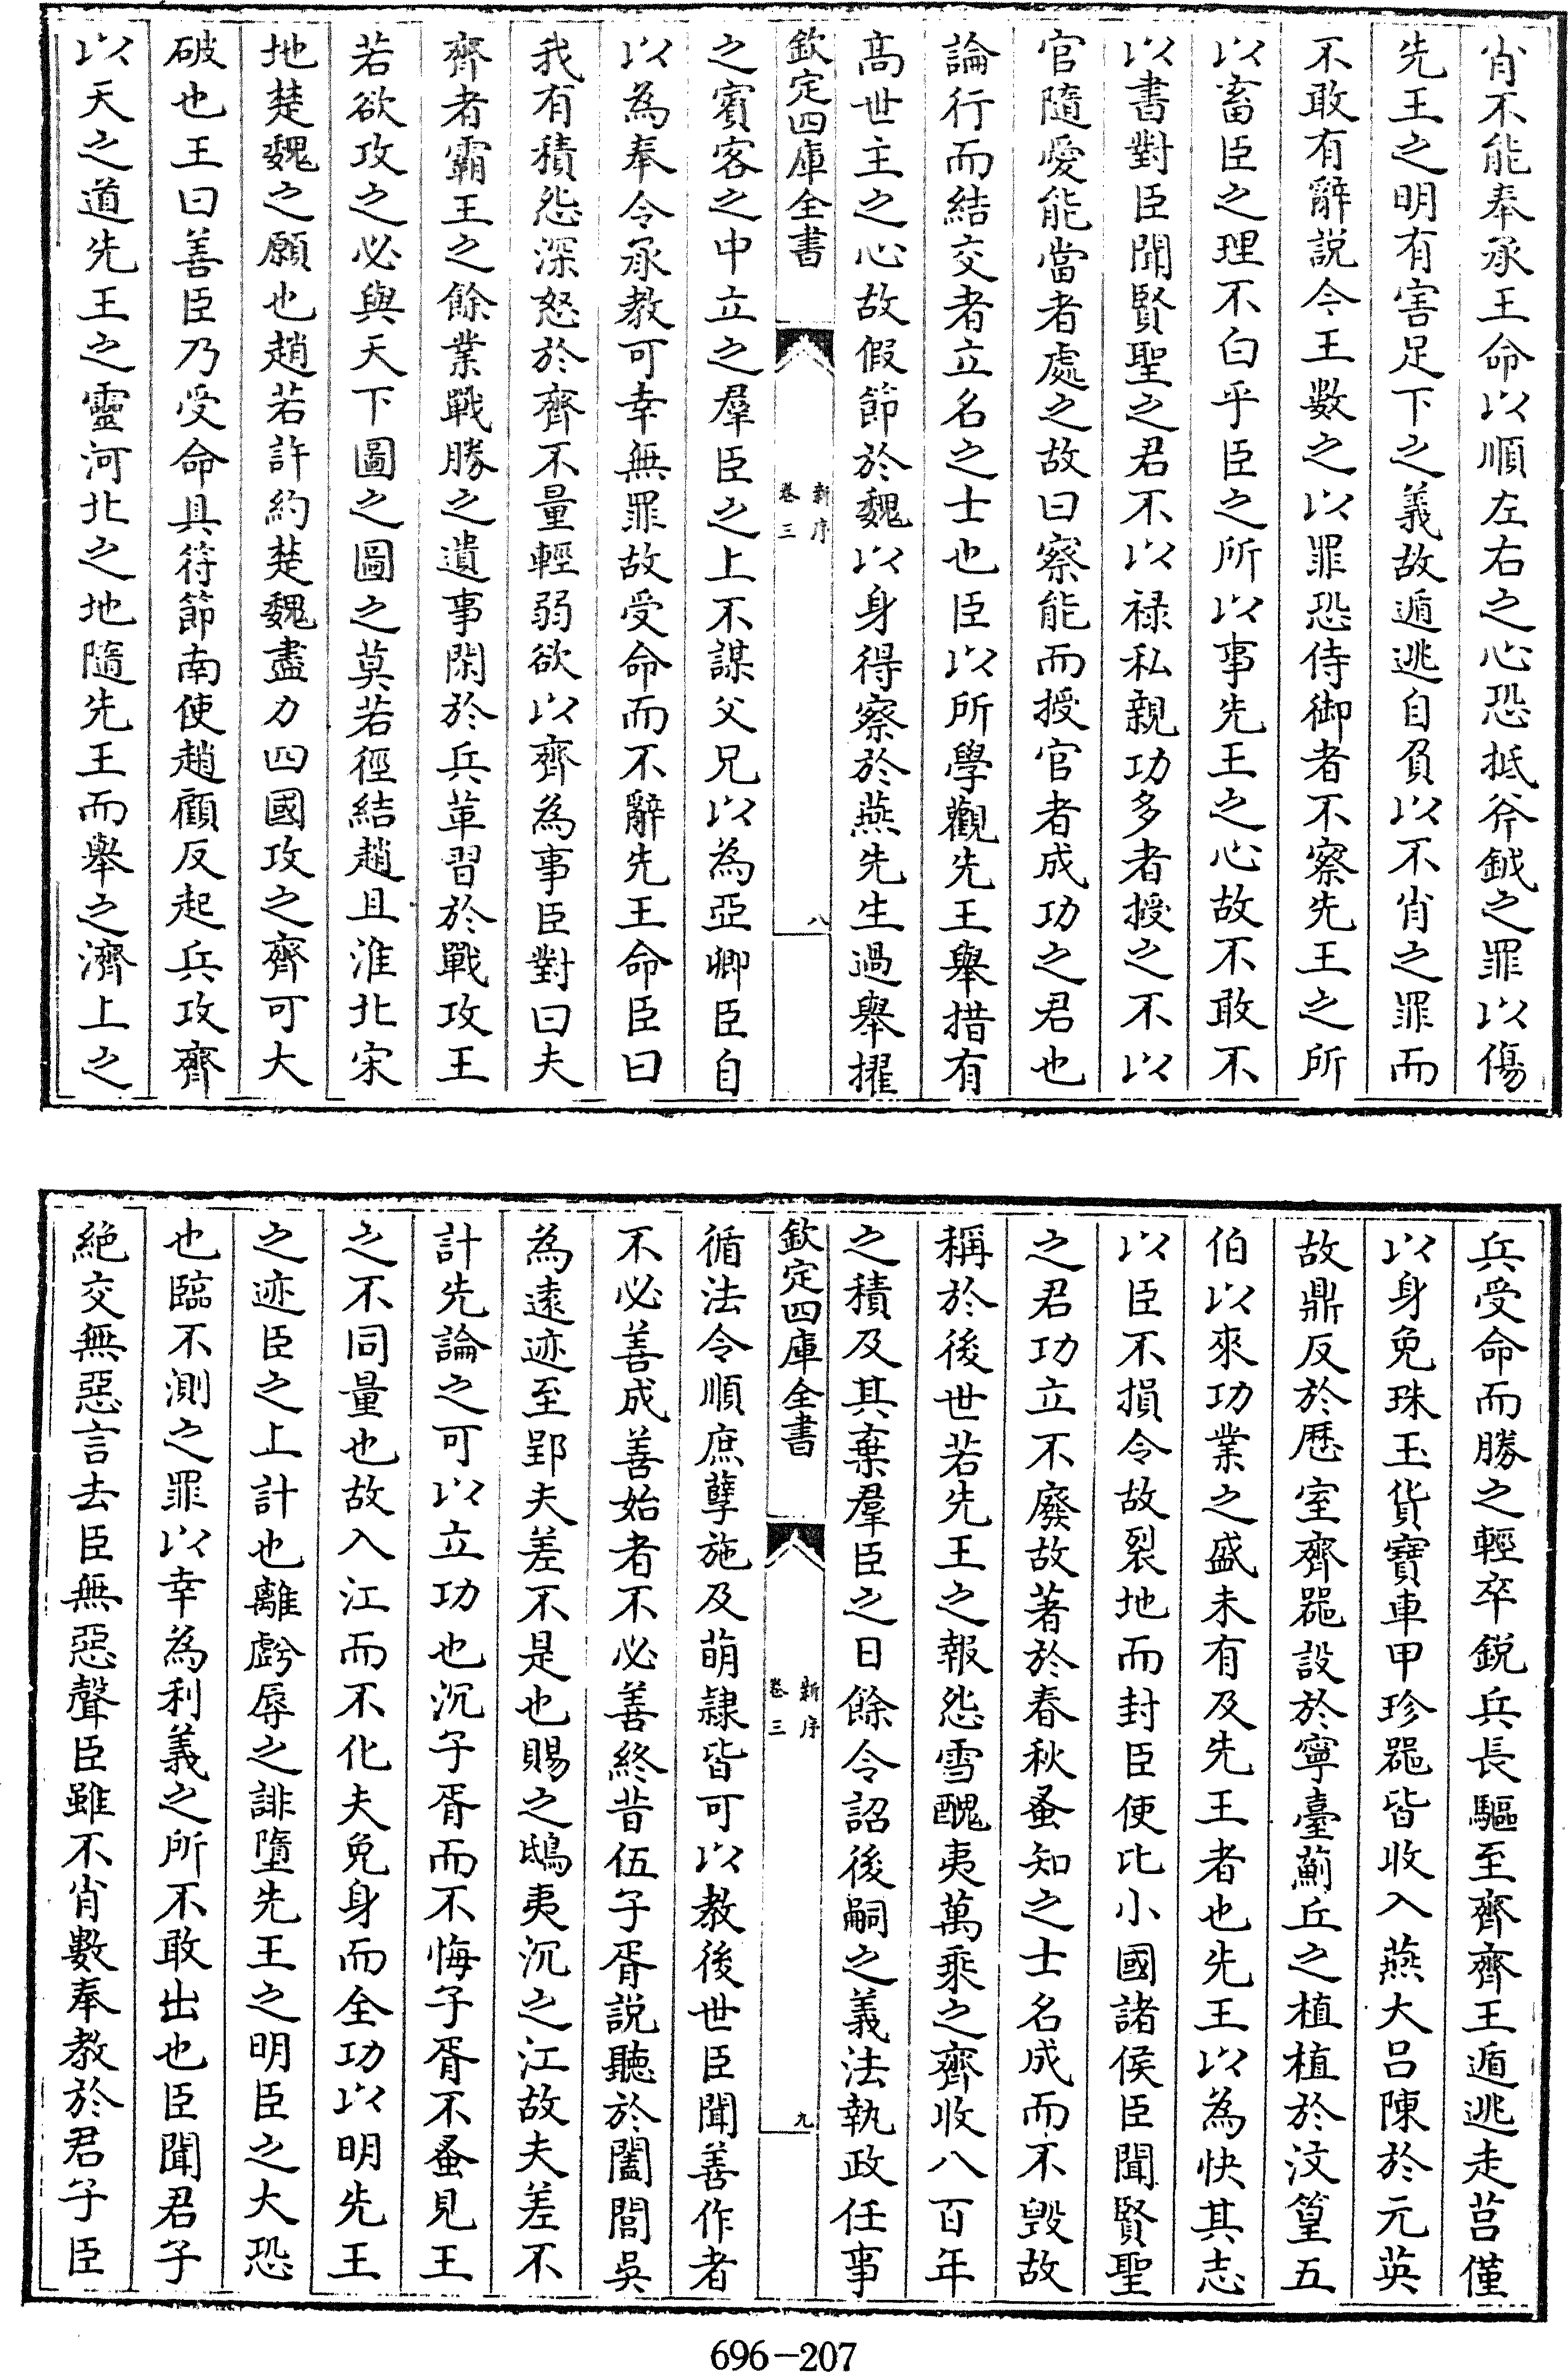 肖不能奉承王命以順左右之心恐抵斧鉞之罪以傷
先王之明有害足下之義故遁逃自負以不肖之罪而
不敢有辭說今王數之以罪恐侍御者不察先王之所
以畜臣之理不白乎臣之所以事先王之心故不敢不
以書對臣聞賢聖之君不以禄私親功多者授之不以
官隨愛能當者處之故曰察能而授官者成功之君也
論行而結交者立名之士也臣以所學觀先王舉措有
髙世主之心故假節於魏以身得察於燕先生過舉擢
欽定四庫全書
新序
卷三
八
之賓客之中立之羣臣之上不謀父兄以為亞卿臣自
以為奉令承教可幸無罪故受命而不辭先王命臣曰
我有積怨深怒於齊不量輕弱欲以齊為事臣對曰夫
齊者霸王之餘業戰勝之遺事閑於兵革習於戰攻王
若欲攻之必與天下圖之圖之莫若徑結趙且淮北宋
地楚魏之願也趙若許約楚魏盡力四國攻之齊可大
破也王曰善臣乃受命具符節南使趙顧反起兵攻齊
以天之道先王之靈河北之地隨先王而舉之濟上之
兵受命而勝之輕卒鋭兵長驅至齊齊王遁逃走莒僅
以身免珠玉貨寶車甲珍器皆收入燕大呂陳於元英
故鼎反於歴室齊器設於寧臺薊丘之植植於汶篁五
伯以來功業之盛未有及先王者也先王以為快其志
以臣不損令故裂地而封臣使比小國諸侯臣聞賢聖
之君功立不廢故著於春秋蚤知之士名成而不毀故
稱於後世若先王之報怨雪醜夷萬乘之齊收八百年
之積及其棄羣臣之日餘令詔後嗣之義法執政任事
欽定四庫全書
新序
卷三
九
循法令順庶孽施及萌隷皆可以教後世臣聞善作者
不必善成善始者不必善終昔伍子胥說聽於闔閭吳
為逺迹至郢夫差不是也賜之鴟夷沉之江故夫差不
計先論之可以立功也沉子胥而不悔子胥不蚤見王
之不同量也故入江而不化夫免身而全功以明先王
之迹臣之上計也離虧辱之誹墮先王之明臣之大恐
也臨不測之罪以幸為利義之所不敢出也臣聞君子
絶交無惡言去臣無惡聲臣雖不肖數奉教於君子臣
696-207